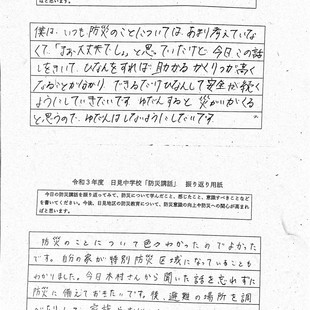 ればと思います。
僕は、いつも防災のことについては、あまり考えていな
くて、「まあ大丈夫でしょ」と思っていたけど今日この話
しをきいて、ひなんをすれば助かるかくりつが高く
なることが分かり、できるだけひなんして安全が続く
ようにしていきたいです。ゆだんすると災がいがくる
と思うので、ゆだんはしないようにしたいです。
令和3年度 日見中学校「防災講話」 振り返り用紙
今日の防災講話を振り返ってみて、防災について学んだこと、感じたこと、意識すべきことなど
を書いてください。今後、日見地区の防災教育について、防災意識の向上や防災への関心が高まれ
ばと思います。
防災のことについて色々わかったのでよかった
です。自分の家が特別防災区域になっていることも
わかりました。今日木村さんから聞いた話を忘れずに
防災に備えておきたいです。僕、避難の場所を調